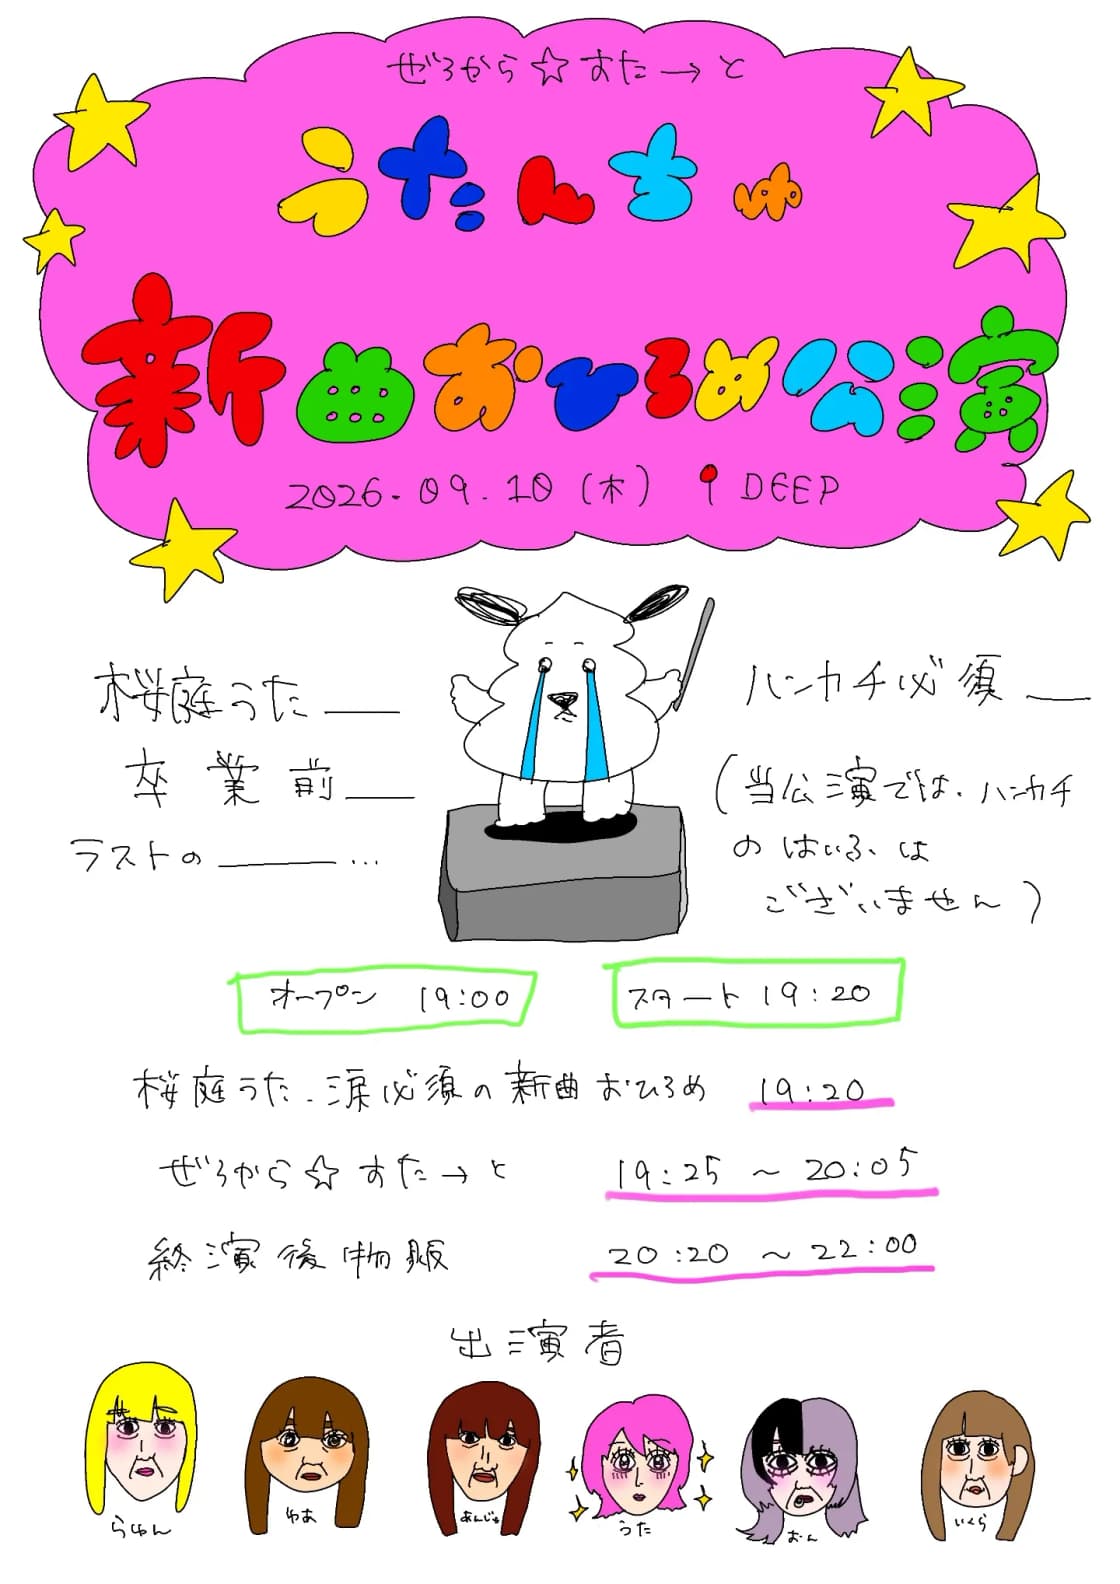 ぜろから☆すたーと
うたんちゅ
新曲おひろめ公演
2026.09.10(木) DEEP
桜庭うた__
卒業前__
ラストの___…
ハンカチ必須__
(当公演では、ハンカチ
のはいふは
ございません)
オープン 19:00
スタート 19:20
桜庭うた、涙必須の新曲おひろめ 19:20
ぜろから☆すた→と 19:25 ~ 20:05
終演後物販 20:20 ~ 22:00
出演者
らゅん
ゆあ
あんじゅ
うた
おん
いくら